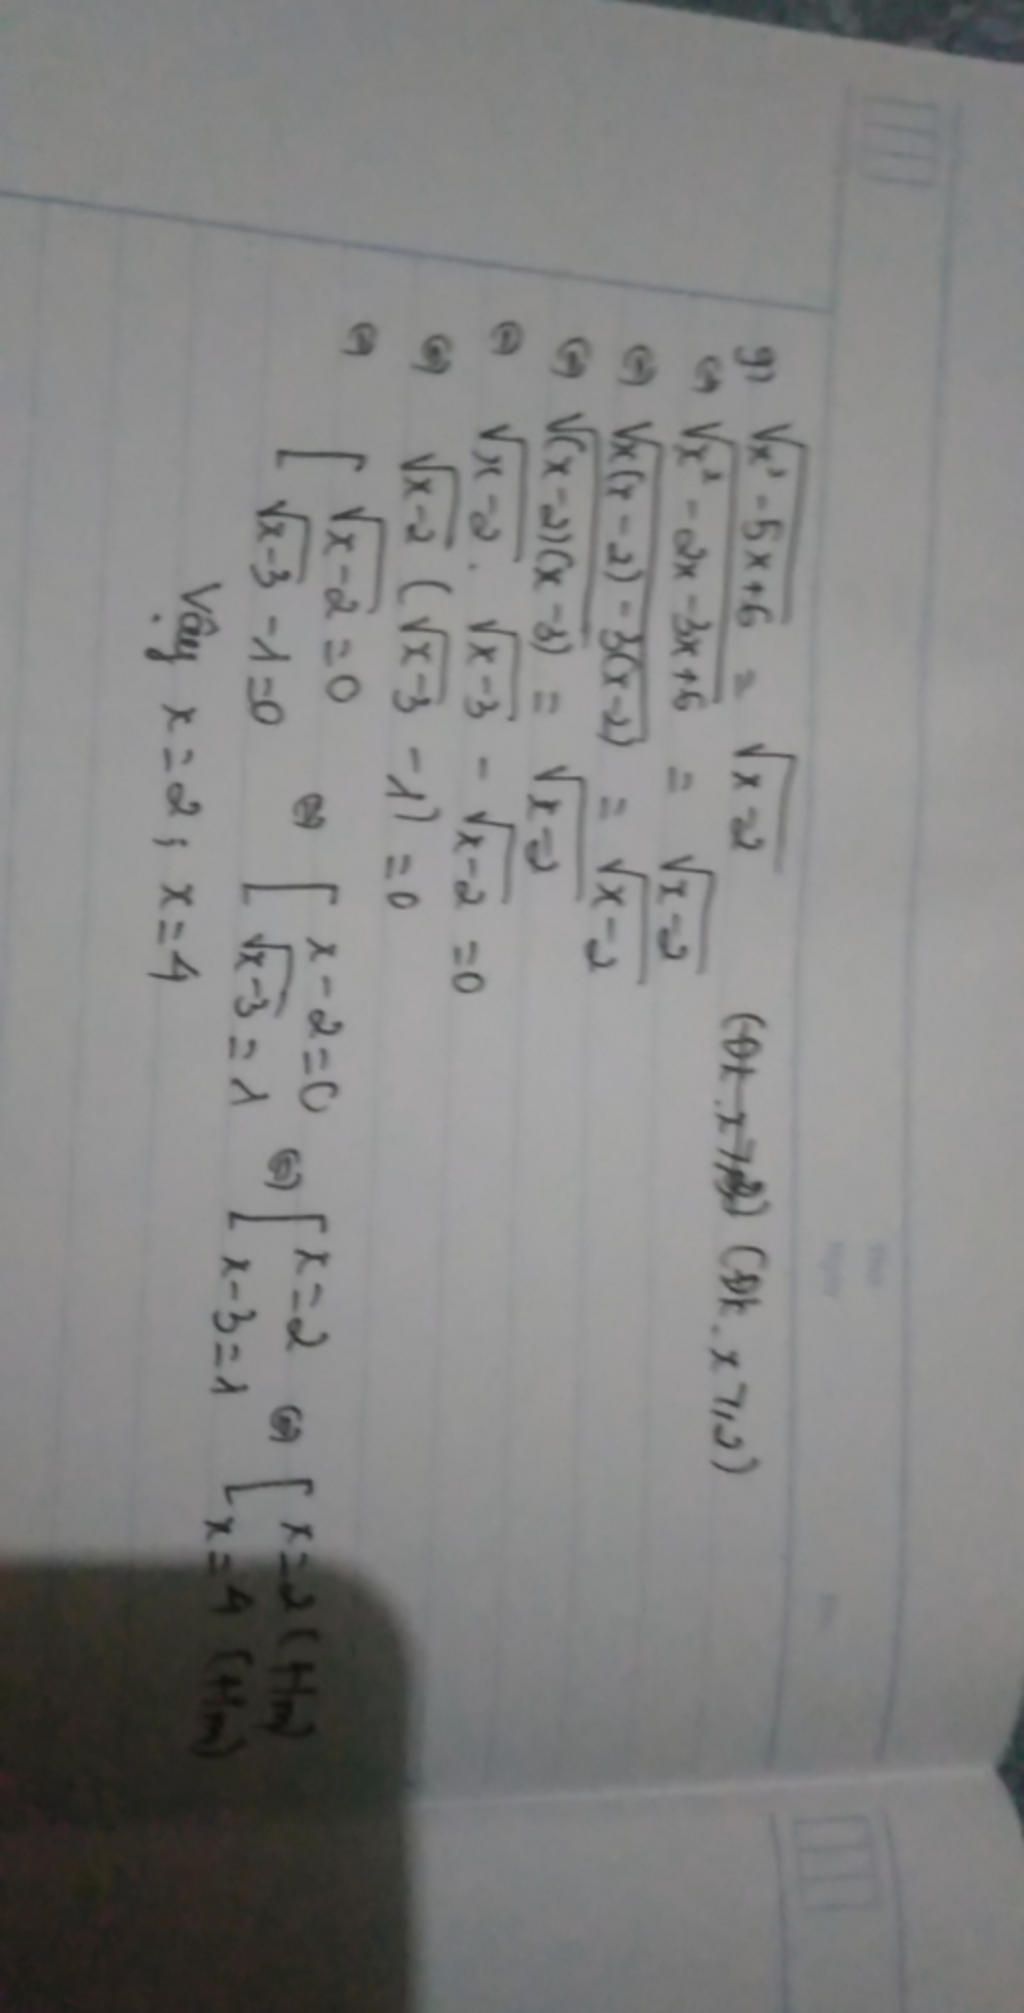 g) √(x² - 5x + 6) = √(x - 2) (Đk x ⩾ 2)
⇔ √(x² - 2x - 3x + 6) = √(x - 2)
⇔ √(x(x - 2) - 3(x - 2)) = √(x - 2)
⇔ √((x - 2)(x - 3)) = √(x - 2)
⇔ √(x - 2) . √(x - 3) - √(x - 2) = 0
⇔ √(x - 2) (√(x - 3) - 1) = 0
⇔ [ √(x - 2) = 0 ⇔ [ x - 2 = 0 ⇔ [ x = 2 ⇔ [ x = 2 (tm)
√(x - 3) - 1 = 0 √(x - 3) = 1 x - 3 = 1 x = 4 (tm)
Vậy x = 2 ; x = 4